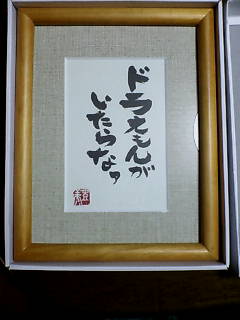 ドラえもんが
いたらなァ